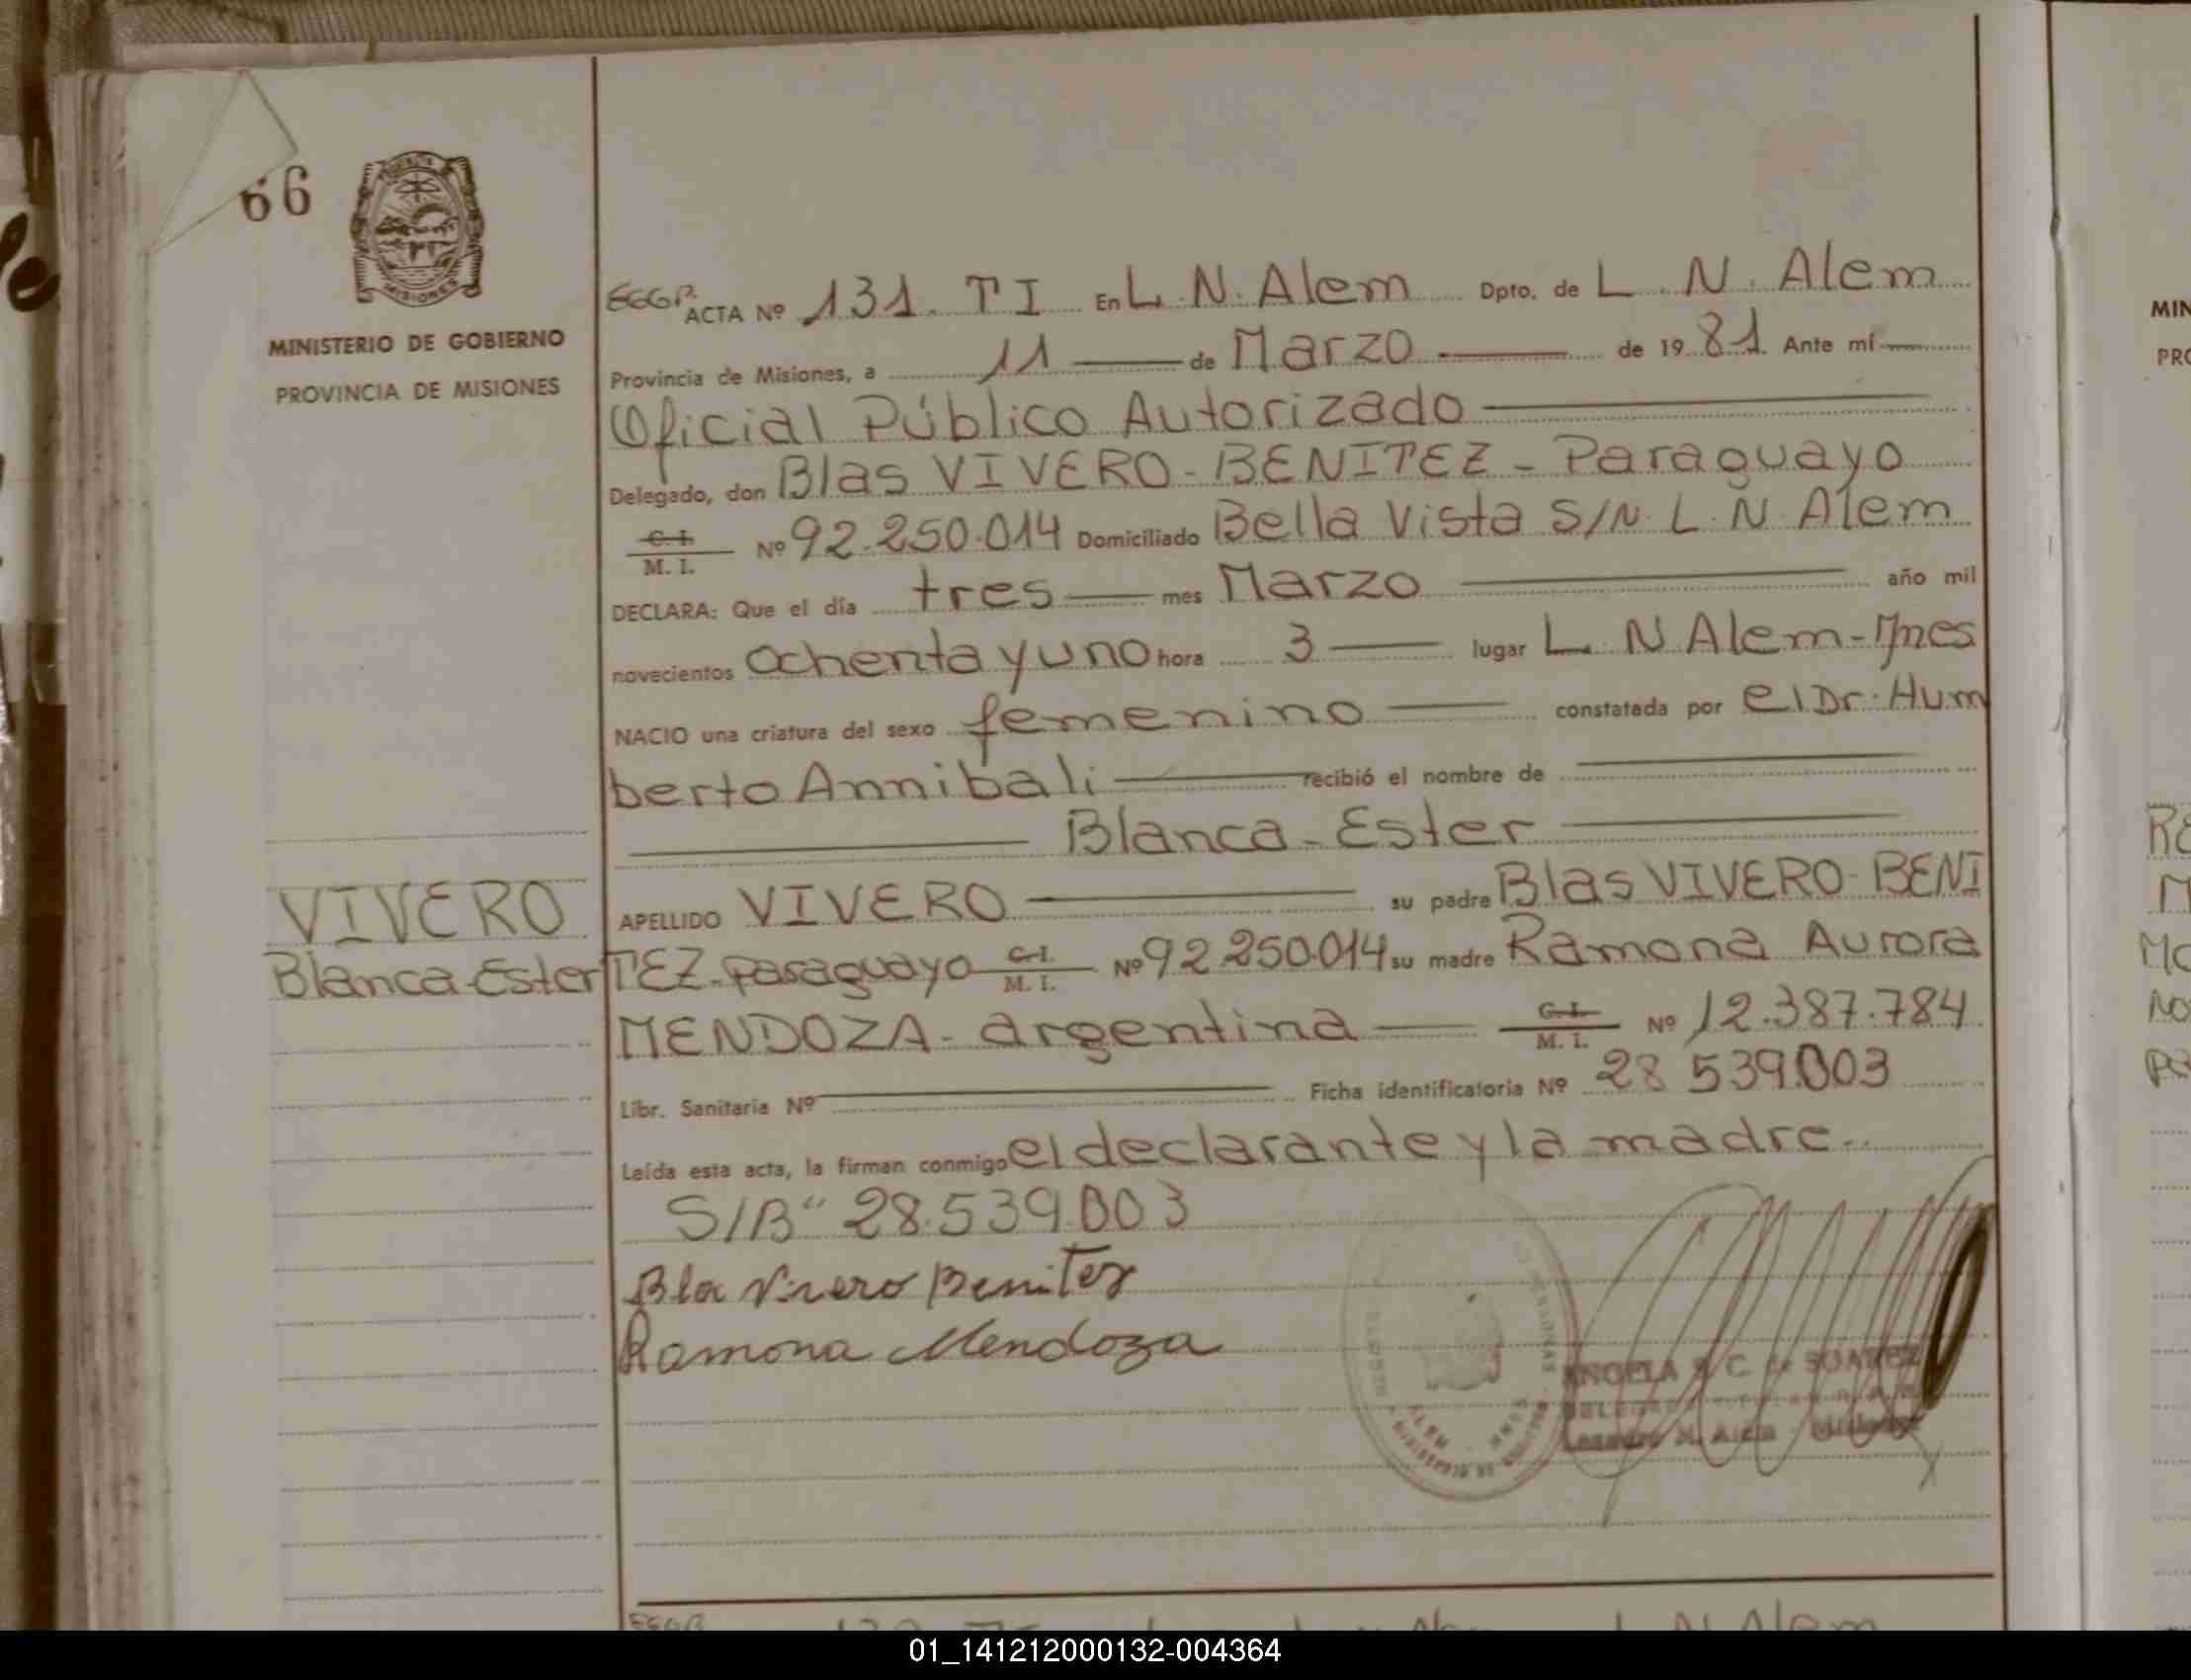 66
MISIONES
MINISTERIO DE GOBIERNO
PROVINCIA DE MISIONES
ACTA Nº 131. TI En L. N. Alem Dpto. de L. N. Alem
Provincia de Misiones, a 11 de Marzo de 1981 Ante mí
Oficial Público Autorizado
Delegado, don Blas VIVERO-BENITEZ - Paraguayo
C. I. M. I. Nº 92.250.014 Domiciliado Bella Vista S/N. L. N. Alem
DECLARA: Que el día tres mes Marzo año mil
novecientos ochenta y uno hora 3 lugar L. N Alem-Mnes
NACIO una criatura del sexo femenino constatada por el Dr. Hum
berto Annibali recibió el nombre de
Blanca-Ester
VIVERO APELLIDO VIVERO su padre Blas VIVERO-BENI
Blanca-Ester TEZ-paraguayo C. I. M. I. Nº 92.250.014 su madre Ramona Aurora
MENDOZA- argentina C. I. M. I. Nº 12.387.784
Libr. Sanitaria Nº Ficha identificatoria Nº 28 539.003
Leída esta acta, la firman conmigo el declarante y la madre.
S/B" 28.539.003
Bla Vivero Benitez
Ramona Mendoza
ANGELA C. de SUAREZ
Leandro N. Alem - Misiones
L N Alem
MIN
PRO
01_141212000132-004364